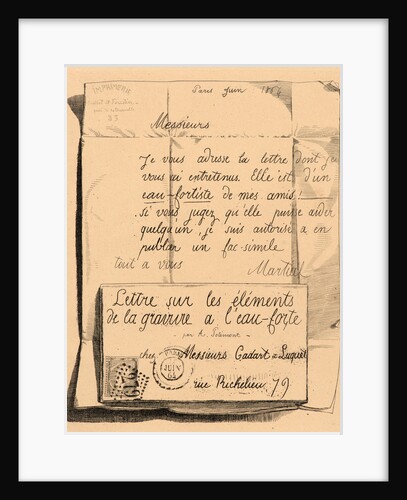 IMPRIMERIE
83
Paris Juin 1864
Messieurs
Je vous adresse la lettre dont je
vous ai entretenus. Elle est d'un
eau-fortiste de mes amis.
Si vous jugez qu'elle puisse aider
quelqu'un, je suis autorisé a en
publier un fac-simile
tout a vous Martial
Lettre sur les éléments
de la gravure a l'eau-forte
par A. Potémont
chez Messieurs Cadart & Luquet
PARIS
JUIN
64
rue Richelieu, 79